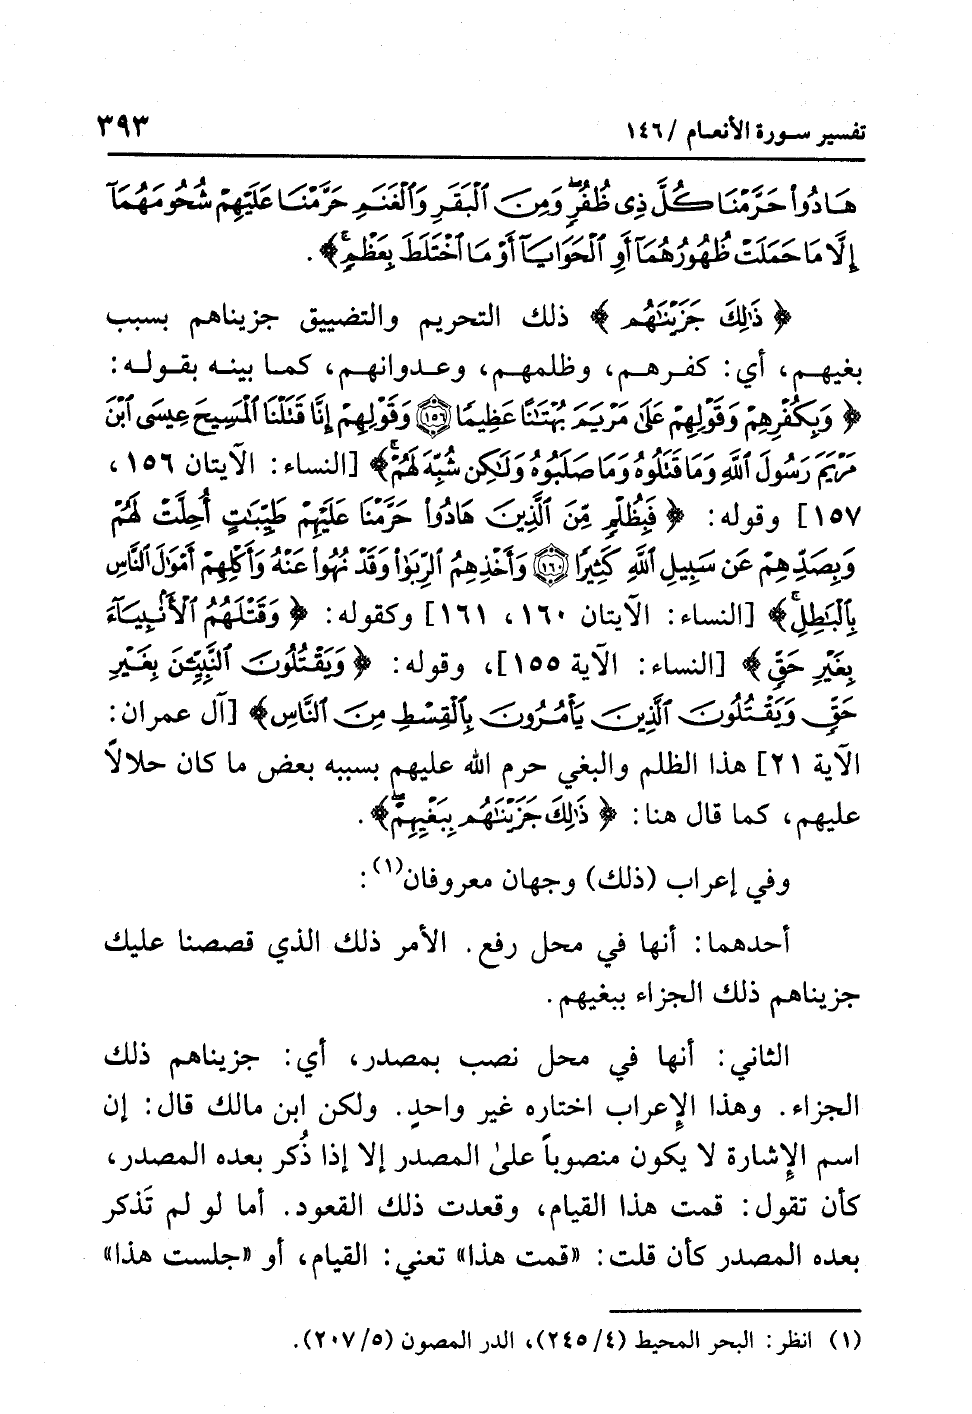 تفسير سورة الأنعام / ١٤٦
٣٩٣
هَادُوا۟ حَرَّمْنَا كُلَّ ذِى ظُفُرٍ ۖ وَمِنَ ٱلْبَقَرِ وَٱلْغَنَمِ حَرَّمْنَا عَلَيْهِمْ شُحُومَهُمَآ
إِلَّا مَا حَمَلَتْ ظُهُورُهُمَآ أَوِ ٱلْحَوَايَآ أَوْ مَا ٱخْتَلَطَ بِعَظْمٍ ۚ﴾.
﴿ذَٰلِكَ جَزَيْنَٰهُم﴾ ذلك التحريم والتضييق جزيناهم بسبب
بغيهم، أي: كفرهم، وظلمهم، وعدوانهم، كما بينه بقوله:
﴿وَبِكُفْرِهِمْ وَقَوْلِهِمْ عَلَىٰ مَرْيَمَ بُهْتَٰنًا عَظِيمًا ١٥٦ وَقَوْلِهِمْ إِنَّا قَتَلْنَا ٱلْمَسِيحَ عِيسَى ٱبْنَ
مَرْيَمَ رَسُولَ ٱللَّهِ وَمَا قَتَلُوهُ وَمَا صَلَبُوهُ وَلَٰكِن شُبِّهَ لَهُمْ ۚ﴾ [النساء: الآيتان ١٥٦،
١٥٧] وقوله: ﴿فَبِظُلْمٍ مِّنَ ٱلَّذِينَ هَادُوا۟ حَرَّمْنَا عَلَيْهِمْ طَيِّبَٰتٍ أُحِلَّتْ لَهُمْ
وَبِصَدِّهِمْ عَن سَبِيلِ ٱللَّهِ كَثِيرًا ١٦٠ وَأَخْذِهِمُ ٱلرِّبَوٰا۟ وَقَدْ نُهُوا۟ عَنْهُ وَأَكْلِهِمْ أَمْوَٰلَ ٱلنَّاسِ
بِٱلْبَٰطِلِ ۚ﴾ [النساء: الآيتان ١٦٠، ١٦١] وكقوله: ﴿وَقَتْلَهُمُ ٱلْأَنۢبِيَآءَ
بِغَيْرِ حَقٍّ﴾ [النساء: الآية ١٥٥]، وقوله: ﴿وَيَقْتُلُونَ ٱلنَّبِيِّـۧنَ بِغَيْرِ
حَقٍّ وَيَقْتُلُونَ ٱلَّذِينَ يَأْمُرُونَ بِٱلْقِسْطِ مِنَ ٱلنَّاسِ﴾ [آل عمران:
الآية ٢١] هذا الظلم والبغي حرم الله عليهم بسببه بعض ما كان حلالاً
عليهم، كما قال هنا: ﴿ذَٰلِكَ جَزَيْنَٰهُم بِبَغْيِهِمْ ۖ﴾.
وفي إعراب (ذلك) وجهان معروفان(١):
أحدهما: أنها في محل رفع. الأمر ذلك الذي قصصنا عليك
جزيناهم ذلك الجزاء ببغيهم.
الثاني: أنها في محل نصب بمصدر، أي: جزيناهم ذلك
الجزاء. وهذا الإِعراب اختاره غير واحدٍ. ولكن ابن مالك قال: إن
اسم الإِشارة لا يكون منصوباً علىٰ المصدر إلا إذا ذُكر بعده المصدر،
كأن تقول: قمت هذا القيام، وقعدت ذلك القعود. أما لو لم تَذكر
بعده المصدر كأن قلت: «قمت هذا» تعني: القيام، أو «جلست هذا»
(١) انظر: البحر المحيط (٤/ ٢٤٥)، الدر المصون (٥/ ٢٠٧).